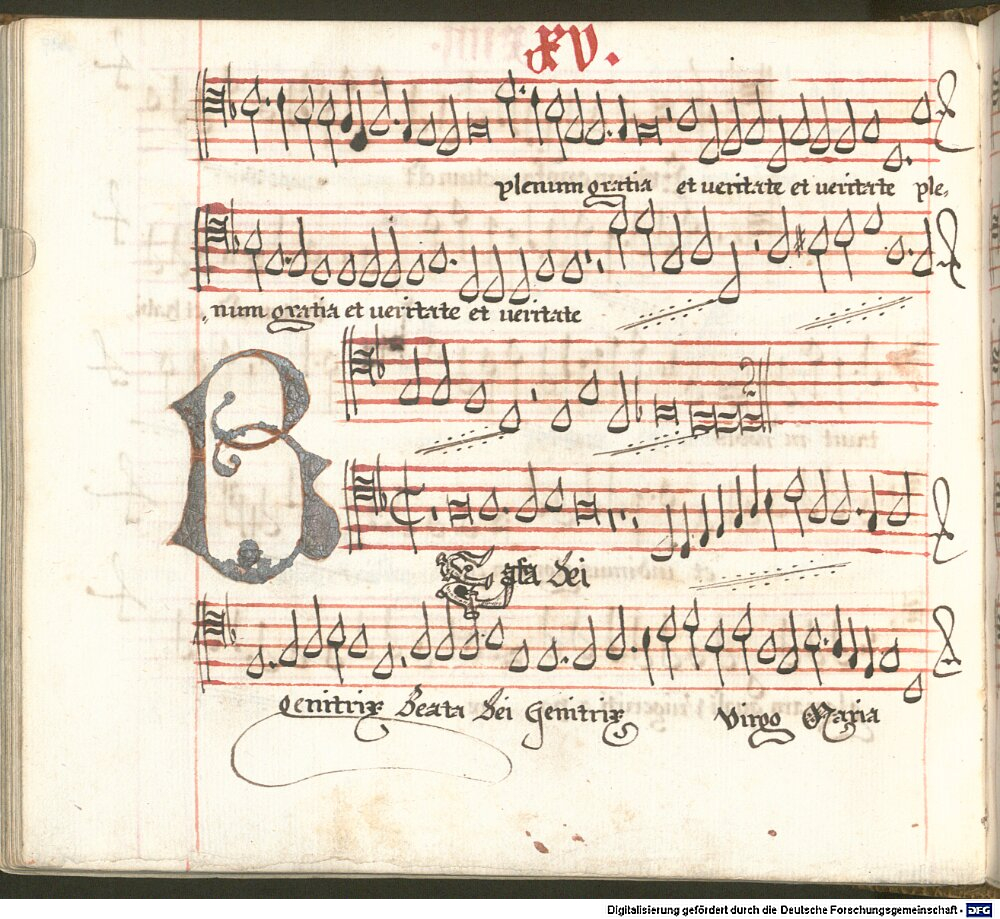 XV.
plenum gratia et veritate et veritate ple-
num gratia et veritate et veritate
B
eata Dei
genitrix Beata Dei Genitrix Virgo Maria
Digitalisierung gefördert durch die Deutsche Forschungsgemeinschaft - DFG